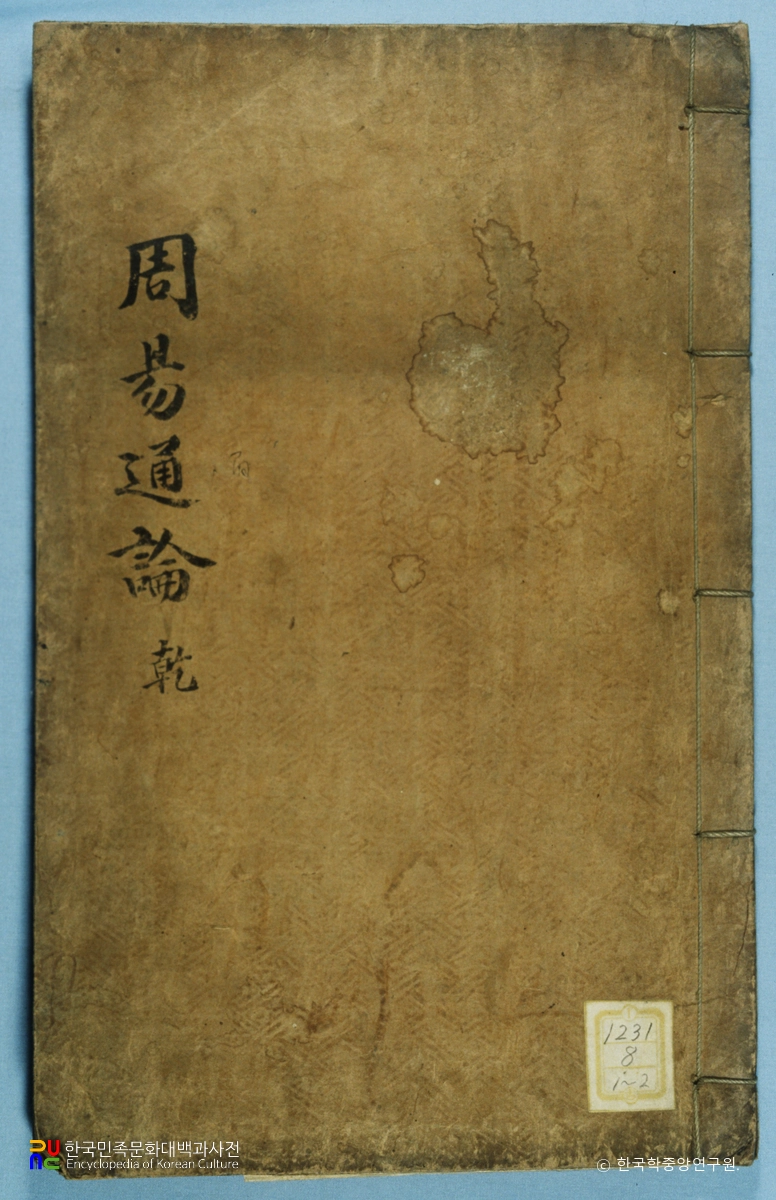 周易通論 乾
1231
8
1~2
한국민족문화대백과사전
Encyclopedia of Korean Culture
© 한국학중앙연구원.